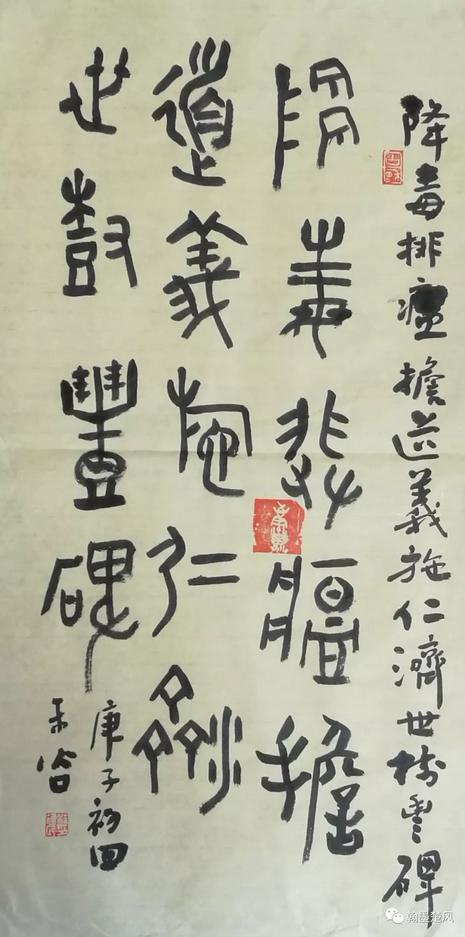 降毒排瘟擔道義施仁濟世樹豐碑
降毒排瘟擔
道義施仁濟
世樹豐碑
庚子初四
翰墨楚风